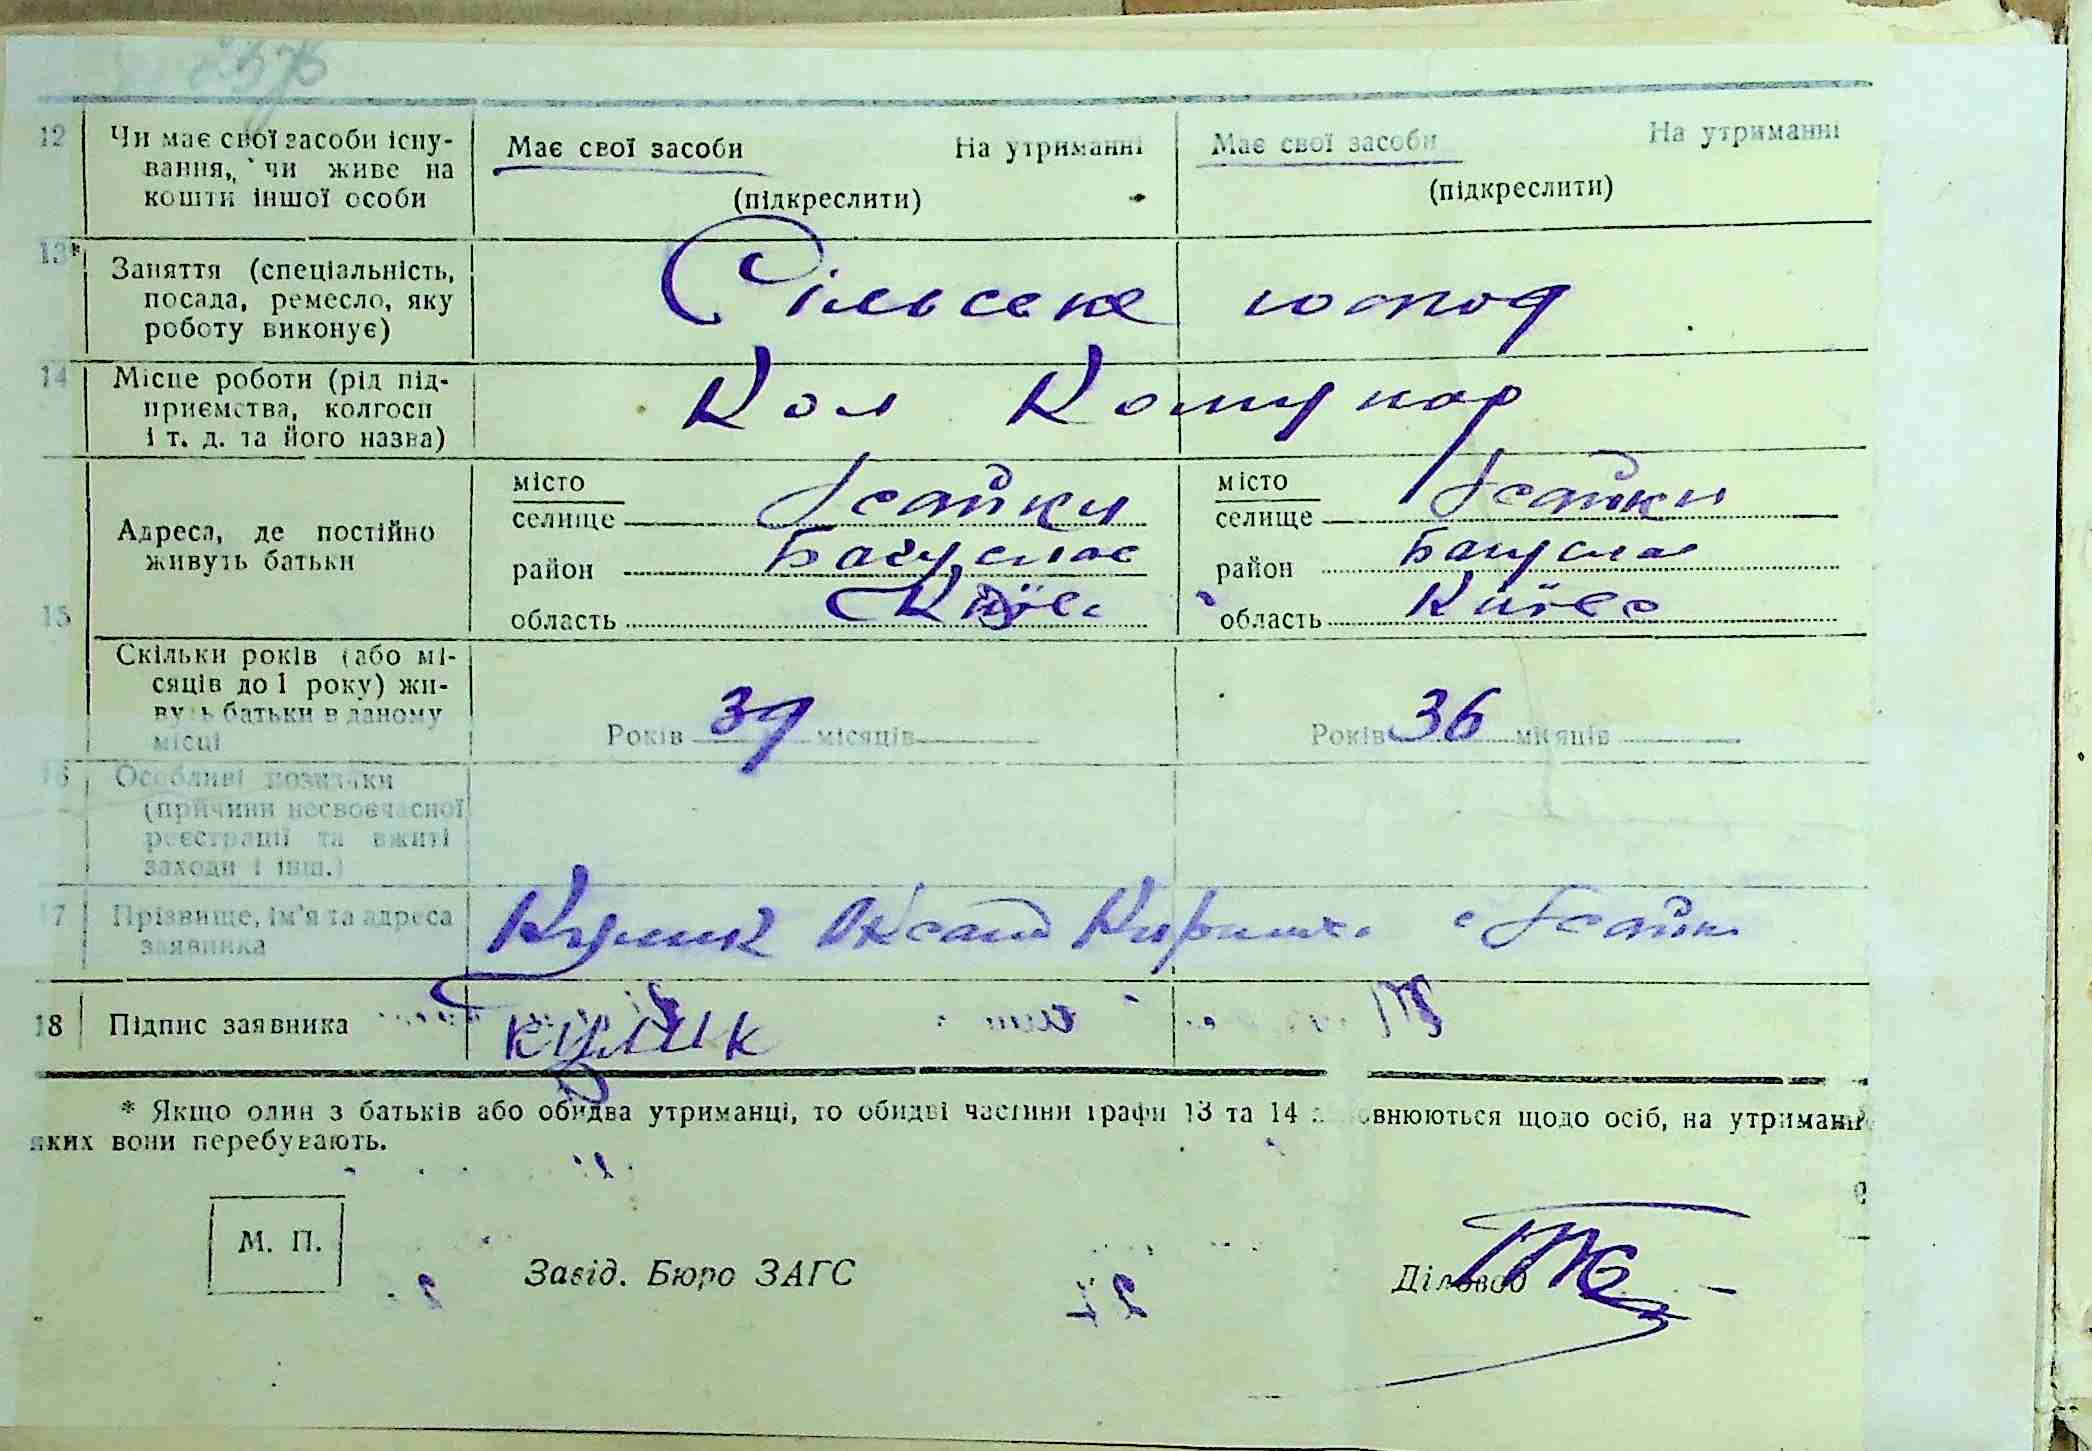 12 Чи має свої засоби існу- Має свої засоби На утриманні Має свої засоби На утриманні
вання, чи живе на
кошти іншої особи (підкреслити) (підкреслити)
13* Заняття (спеціальність,
посада, ремесло, яку Сільське господ
роботу виконує)
14 Місце роботи (рід під-
приємства, колгосп Кол Комунар
і т. д. та його назва)
15 Адреса, де постійно
живуть батьки
місто
селище Ісайки
район Богуслав
область Київс
місто
селище Ісайки
район Богусла
область Київс
Скільки років (або мі-
сяців до 1 року) жи-
вуть батьки в даному
місці
Років 39 місяців
Років 36 місяців
16 Особливі познаки
(причини несвоєчасної
реєстрації та вжиті
заходи і інш.)
17 Прізвище, ім'я та адреса
заявника Кулик с Ісайки
18 Підпис заявника кулик
* Якщо один з батьків або обидва утриманці, то обидві частини графи 13 та 14 заповнюються щодо осіб, на утриманні
яких вони перебувають.
М. П.
Завід. Бюро ЗАГС Діловод